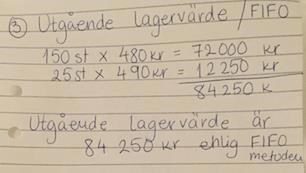 ③ Utgående lagervärde / FIFO
150 st × 480 kr = 72 000 kr
25 st × 490 kr = 12 250 kr
84 250 K
Utgående lagervärde är
84 250 kr enlig FIFO
metoden